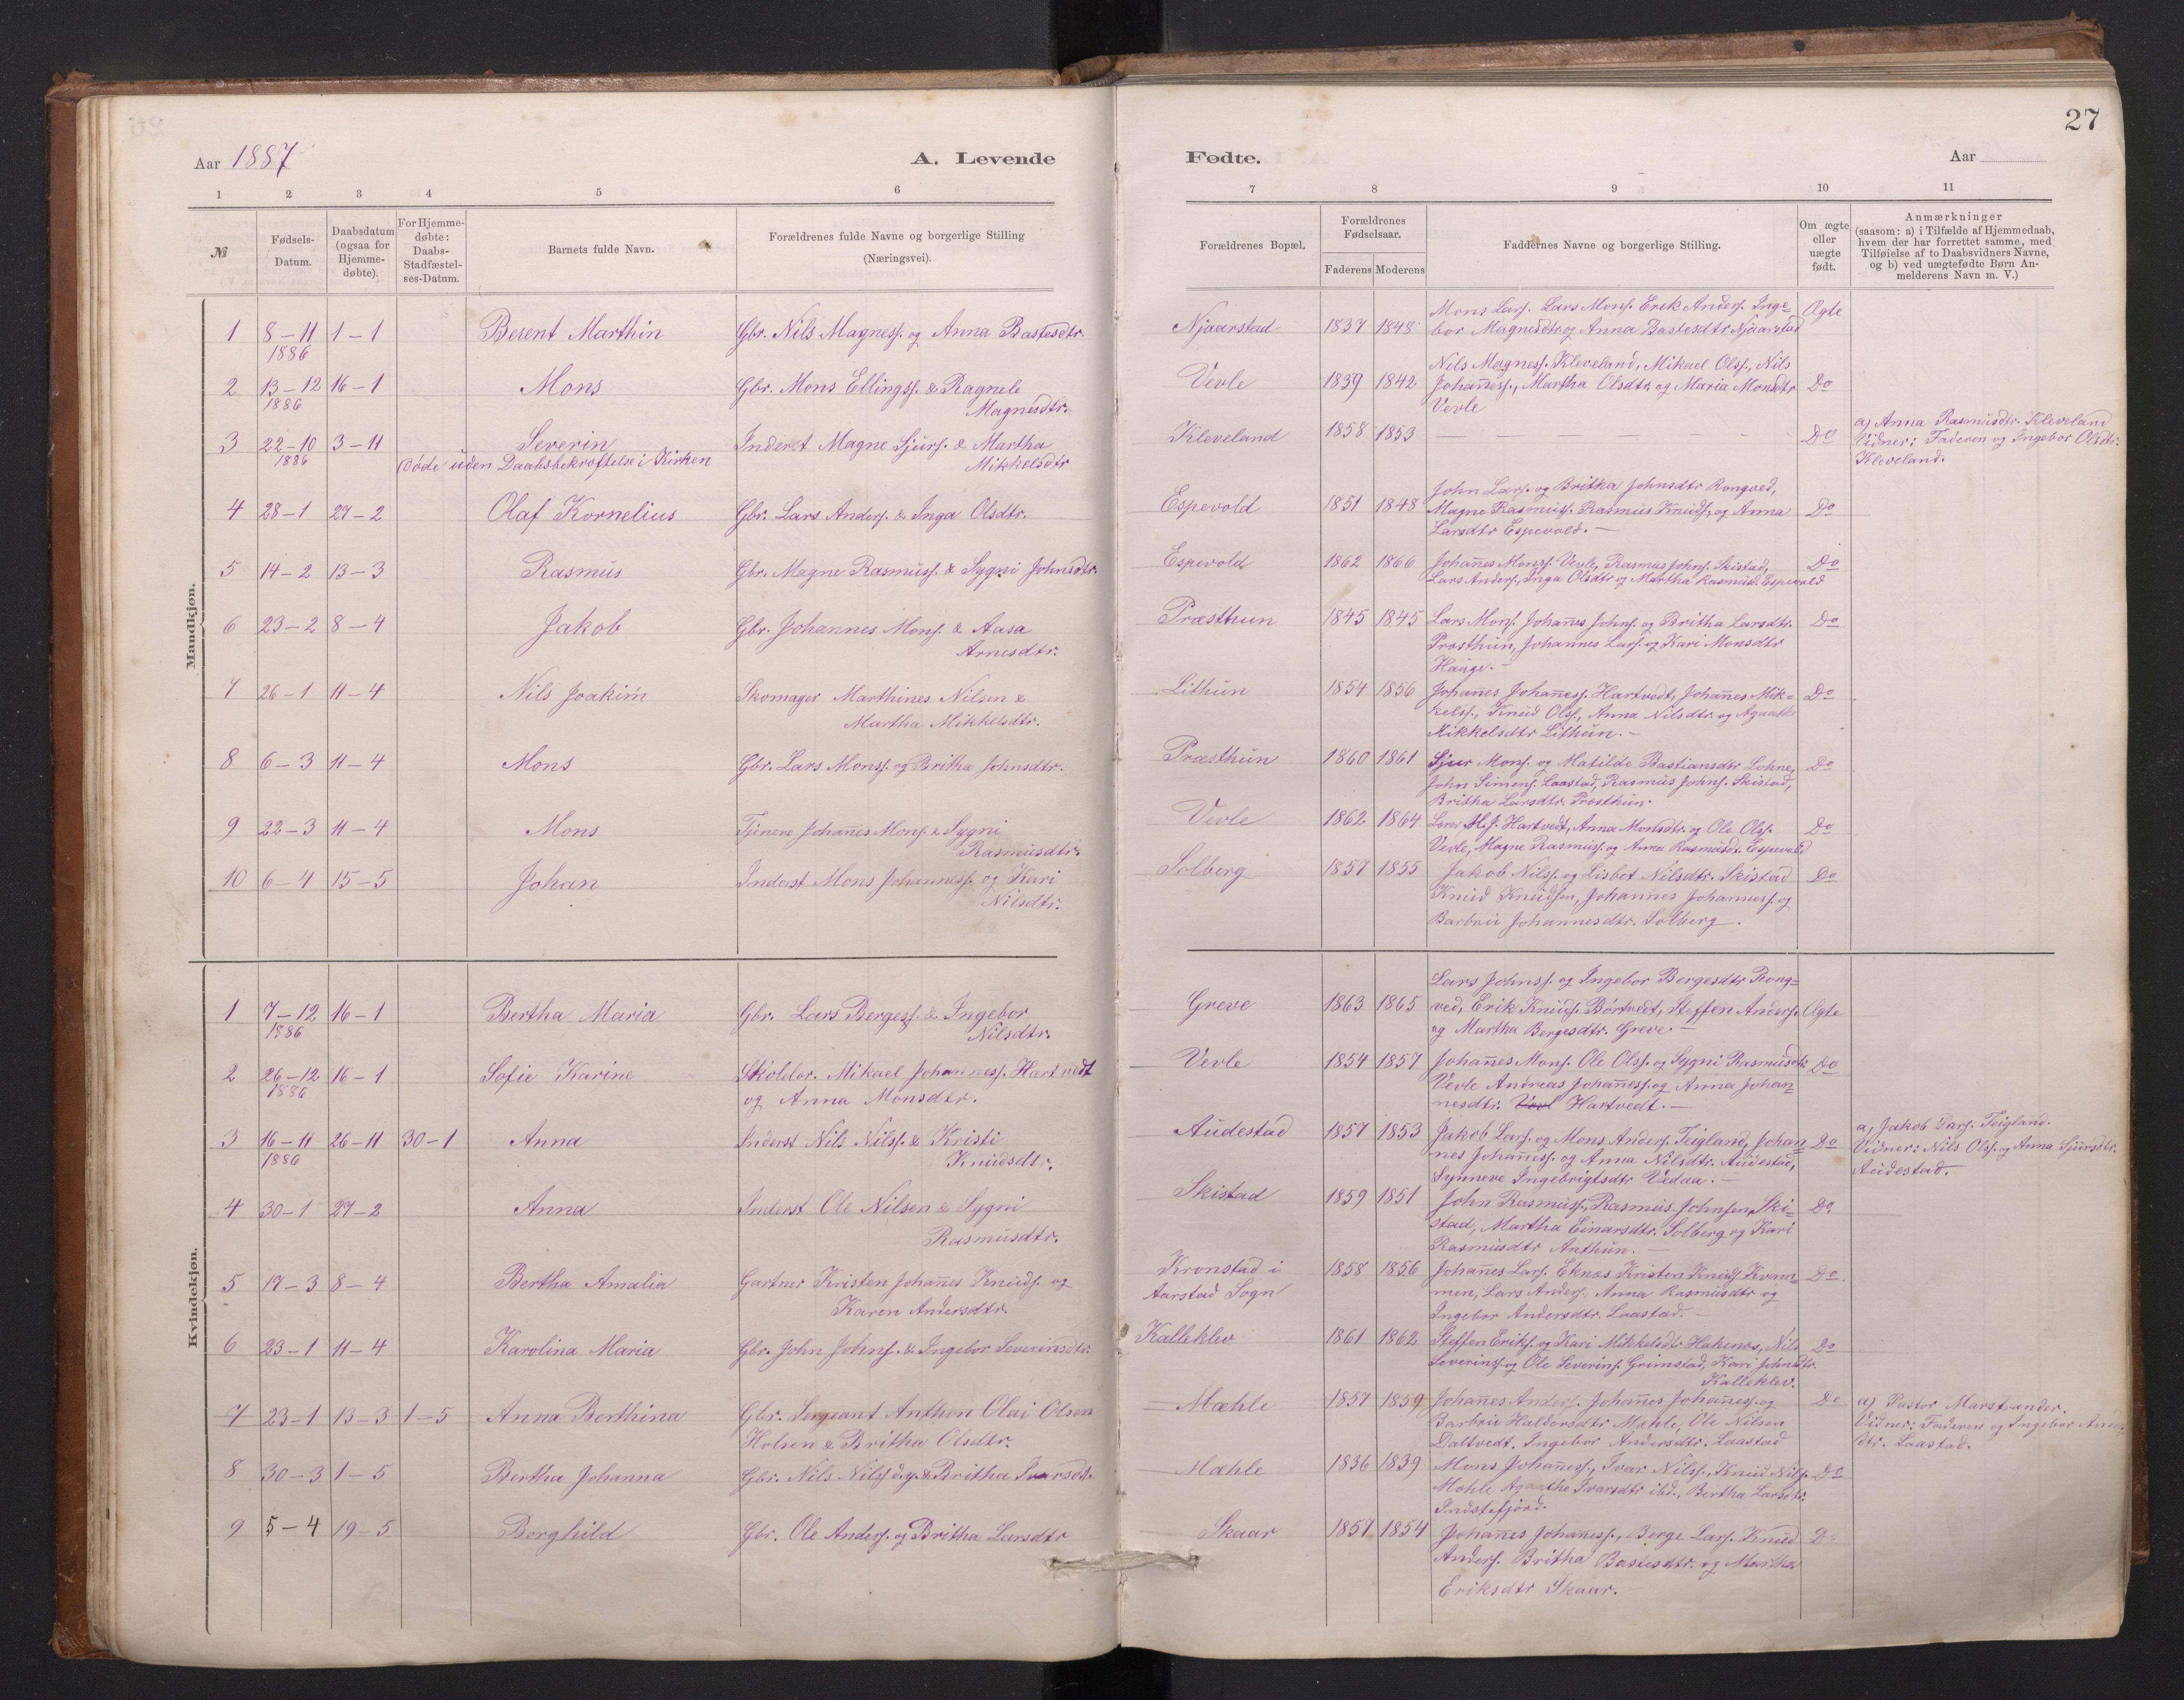 27
Aar 1887
A. Levende
Fødte.
Aar
1 2 3 4 5 6 7 8 9 10 11
№
Fødsels-Datum.
Daabsdatum (ogsaa for Hjemme-døbte).
For Hjemme-døbte: Daabs-Stadfæstel-ses-Datum.
Barnets fulde Navn.
Forældrenes fulde Navne og borgerlige Stilling (Næringsvei).
Forældrenes Bopæl.
Forældrenes Fødselsaar.
Faderens Moderens
Faddernes Navne og borgerlige Stilling.
Om ægte eller uægte født.
Anmærkninger
(saasom: a) i Tilfælde af Hjemmedaab,
hvem der har forrettet samme, med
Tilføielse af to Daabsvidners Navne,
og b) ved uægtefødte Børn An-
melderens Navn m. V.)
Mandkjøn.
1 8-11 1886 1-1 Berent Marthin Gbr. Nils Magness. og Anna Bastesdtr. Njaarstad 1837 1848
Mons Lars. Lars Mons. Erik Anders. Inge=
bor Magnesdtr og Anna Bastesdtr Njaarstad
Ægte
2 13-12 1886 16-1 Mons Gbr. Mons Ellingss. & Ragnele
Magnesdtr. Vevle 1839 1842
Nils Magness. Kleveland, Mikael Olss., Nils
Johañess., Martha Olsdtr. og Maria Monsdtr
Vevle
Do
3 22-10 1886 3-11 Severin
(Døde uden Daabsbekræftelse i Kirken
Inderst Magne Sjurs. & Martha
Mikkelsdtr Kleveland 1858 1853 Do
a) Anna Rasmusdtr. Kleveland
Vidner: Faderen og Ingebor Olsdtr.
Kleveland.
4 28-1 27-2 Olaf Kornelius Gbr. Lars Anders. & Inga Olsdtr. Espevold 1851 1848
John Lars. og Britha Johnsdtr Rongved,
Magne Rasmuss. Rasmus Knuds. og Anna
Larsdtr Espevold. –
Do
5 14-2 13-3 Rasmus Gbr. Magne Rasmuss. & Sygni Johnsdtr. Espevold 1862 1866
Johañes Monss. Vevle, Rasmus Johns. Skistad,
Lars Anders., Inga Olsdtr og Martha Rasmusd. Espevold
Do
6 23-2 8-4 Jakob Gbr. Johannes Mons. & Aasa
Arnesdtr. Præsthun 1845 1845
Lars Mons. Johañes Johns. og Britha Larsdtr.
Præsthun, Johannes Lars. og Kari Monsdtr
Hauge. –
Do
7 26-1 11-4 Nils Joakim Skomager Marthines Nilsen &
Martha Mikkelsdtr. Lithun 1854 1856
Johañes Johañess. Hartvedt, Johañes Mik=
kelss., Knud Olss., Anna Nilsdtr og Agaathe
Mikkelsdtr Lithun. –
Do
8 6-3 11-4 Mons Gbr. Lars Monss. og Britha Johnsdtr. Præsthun 1860 1861
Sjur Mons. og Matilde Bastiansdtr Lohne,
John Simens. Laastad, Rasmus Johns. Skistad,
Britha Larsdtr. Præsthun.
Do
9 22-3 11-4 Mons Tjenere Johañes Mons. & Sygni
Rasmusdtr. Vevle 1862 1864
Hartvedt, Anna Monsdtr. og Ole Olss.
Vevle, Magne Rasmuss. og Anna Rasmusdt. Espevold
Do
10 6-4 15-5 Johan Inderst Mons Johanness. og Kari
Nilsdtr. Solberg 1857 1855
Jakob Nilss. og Lisbet Nilsdtr. Skistad
Knud Knudsen, Johannes Johanness. og
Barbrii Johannesdtr. Solberg.
Do
Kvindekjøn.
1 7-12 1886 16-1 Bertha Maria Gbr. Lars Bergess. & Ingebor
Nilsdtr. Greve 1863 1865
Lars Johnss. og Ingebor Bergesdtr Rong=
ved, Erik Knuds. Børtvedt, Steffen Anders.
og Martha Bergesdtr. Greve. –
Ægte
2 26-12 1886 16-1 Sofie Karine Skolelær. Mikael Johanness. Hartvedt
og Anna Monsdtr. Vevle 1854 1857
Johañes Mons. Ole Olss. og Sygni Rasmusdtr
Vevle Andreas Johañess. og Anna Johan=
nesdtr. Hartvedt. –
Do
3 16-11 1886 26-11 30-1 Anna Inderst Nils Nilss. & Kristi
Knudsdtr. Audestad 1857 1853
Jakob Lars. og Mons Anders. Teigland, Johan=
nes Johañess. og Anna Nilsdtr. Audestad,
Synneve Ingebrigtsdtr Vedaa. –
Do
a, Jakob Lars. Teigland.
Vidner: Nils Olss. og Anna Sjursdtr.
Audestad.
4 30-1 27-2 Anna Inderst Ole Nilsen & Sygni
Rasmusdtr. Skistad 1859 1851
John Rasmuss., Rasmus Johnsen, Ski=
stad, Martha Einarsdtr. Solberg og Kari
Rasmusdtr Anthun. –
Do
5 17-3 8-4 Bertha Amalia Gartner Kristen Johañes Knuds. og
Karen Andersdtr. Kronstad i
Aarstad Sogn 1858 1856
Johañes Lars. Eknæs Kristen Knuds. Kvam=
men, Lars Anders. Anna Rasmusdtr og
Ingebor Andersdtr. Laastad. –
Do
6 23-1 11-4 Karolina Maria Gbr. John Johns. & Ingebor Severinsdtr. Kalleklev 1861 1862
Steffen Eriks. og Kari Mikkelsdtr. Hakenæs, Nils
Severins. og Ole Severins. Grimstad, Kari Johnsdtr.
Kalleklev.
Do
7 23-1 13-3 1-5 Anna Berthina Gbr. Sergeant Anthon Olai Olsen
Holsen & Britha Olsdtr. Mæhle 1857 1859
Johañes Anders. Johañes Johañess. og
Barbrii Haldorsdtr Mæhle, Ole Nilsen
Daltvedt. Ingebor Andersdtr. Laastad
Do
a) Pastor Marstrander.
Vidner: Faderen og Ingebor Ands-
dtr. Laastad.
8 30-3 1-5 Bertha Johanna Gbr. Nils Nilss. d.y. & Britha Ivarsdt. Mæhle 1836 1839
Mons Johañess., Ivar Nilss., Knud Nils.
Mæhle Agaathe Ivarsdtr ibd., Bertha Larsdtr.
Indstefjord.
Do
9 5-4 19-5 Borghild Gbr. Ole Anders. og Britha Larsdtr Skaar 1857 1854
Johañes Johañess., Berge Lars. Knud
Anders. Britha Bastesdtr. og Martha
Eriksdtr Skaar. –
Do